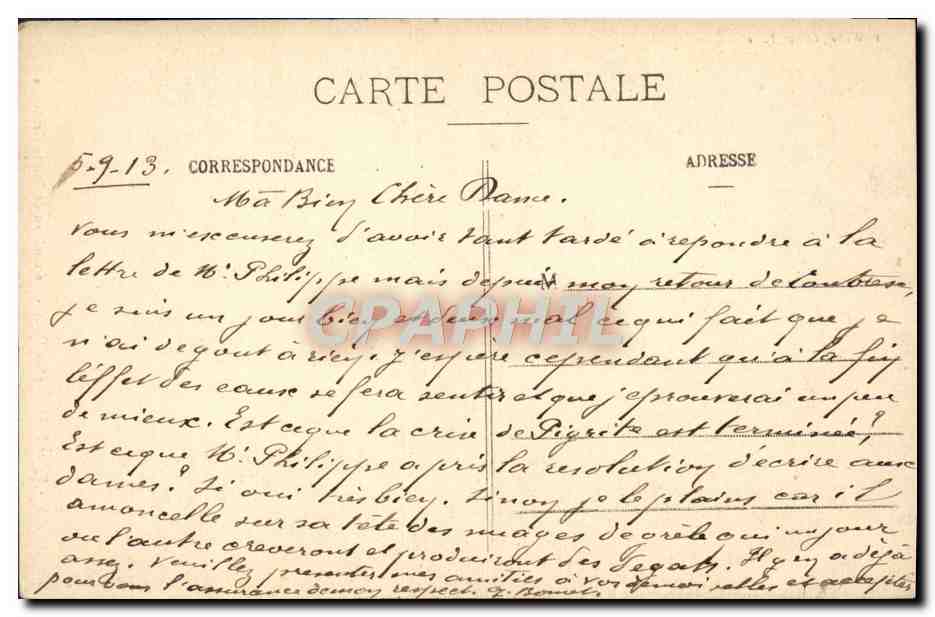 CARTE POSTALE
5-9-13. CORRESPONDANCE
ADRESSE
Ma Bien Chère Dame.
Vous m'excuserez d'avoir tant tardé à repondre à la
lettre de Mr. Philippe mais depuis mon retour de
je suis un jour bien et deux mal ce qui fait que je
n'ai degout à rien. J'espère cependant qu'à la fin
l'effet des eaux se fera sentir et que j'eprouverai un peu
de mieux. Est ce que la crise de Pigrite est terminée?
Est ce que Mr. Philippe a pris la resolution d'écrire aux
dames? Si oui très bien. Sinon je le plains car il
amoncelle sur sa tête des nuages de grêle qui un jour
ou l'autre creveront et produiront des Degats. Il y en a déjà
assez. Veuillez presenter mes amitiés à vos demoiselles et acceptez
pour vous l'assurance de mon respect.
CPAPHIL